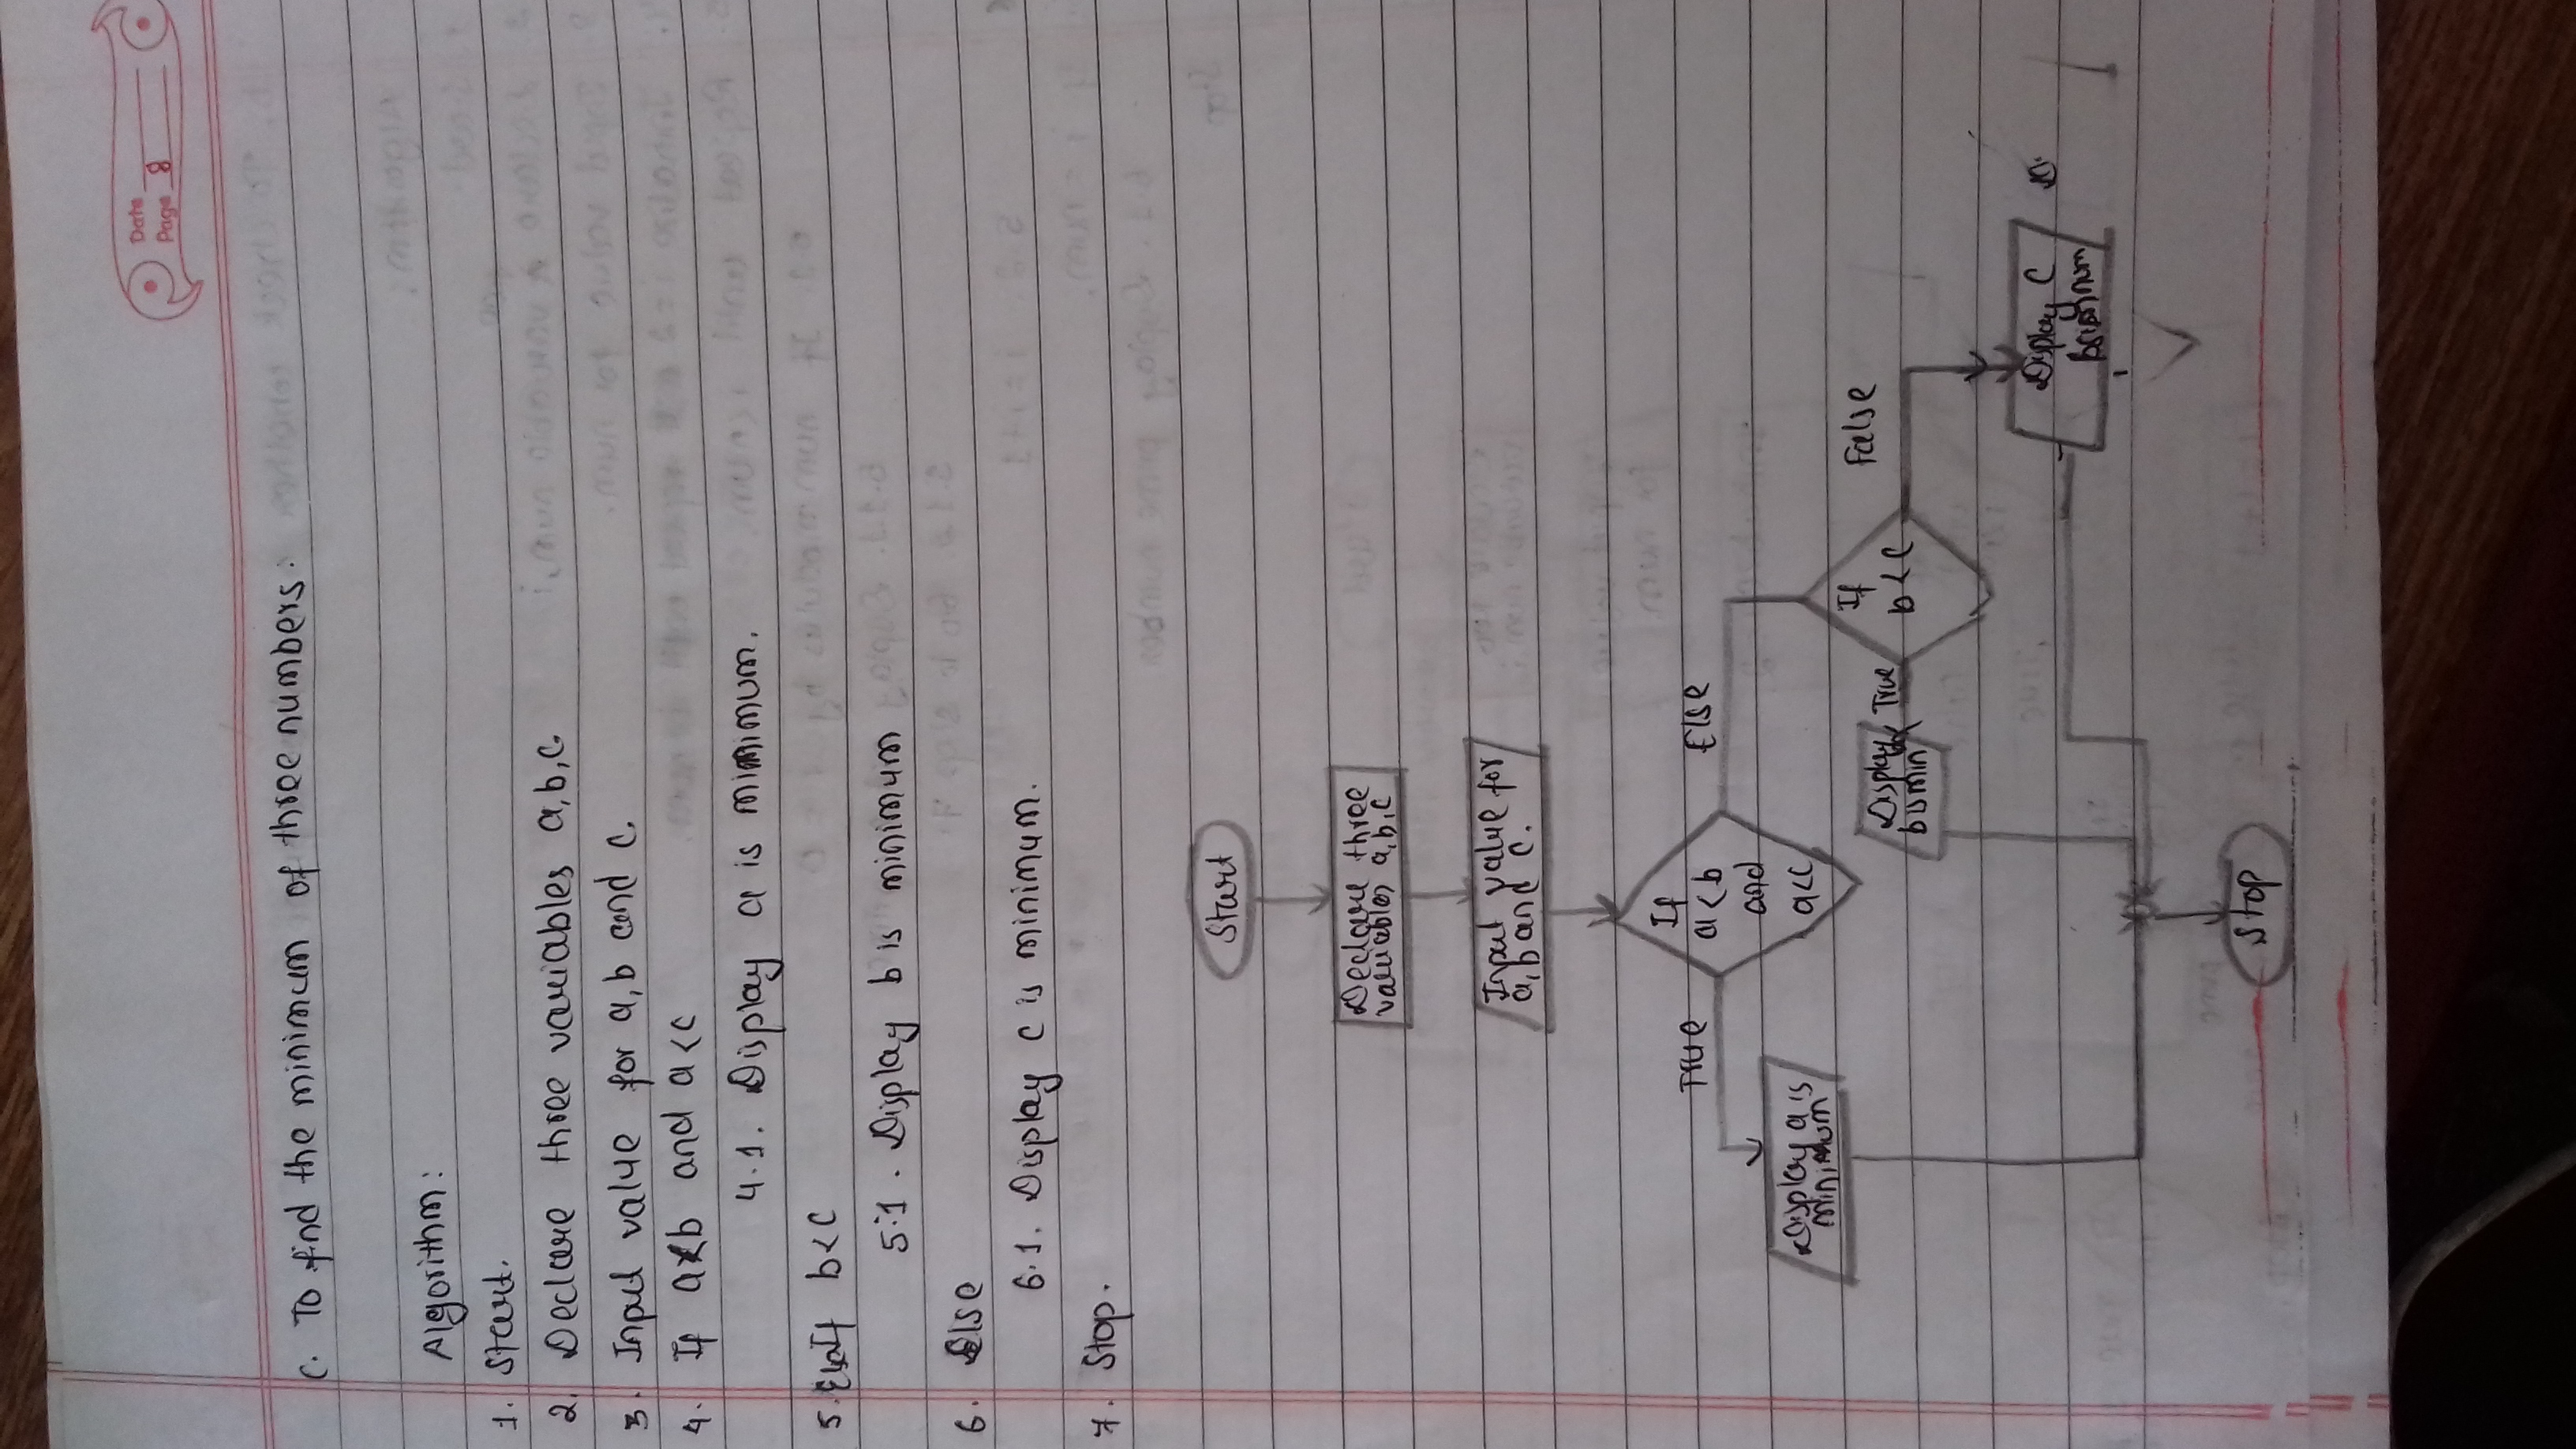 Date
Page 8
C. To find the minimum of three numbers.
Algorithm:
1. Start.
2. Declare three variables a,b,c.
3. Input value for a,b and c.
4. If a<b and a<c
4.1. Display a is minimum.
5. Else If b<c
5.1. Display b is minimum
6. Else
6.1. Display c is minimum.
7. Stop.
Start
Declare three
variables a,b,c
Input value for
a,b and c.
If
a<b
and
a<c
True
Else
Display a is
minimum
If
b<c
True
False
Display
b is min
Display C
D.
Stop